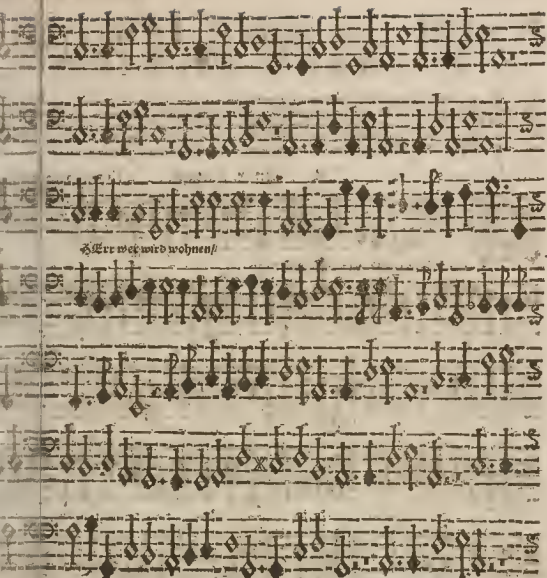 HErr wer wird wohnen/